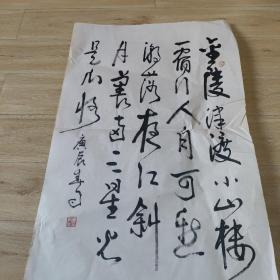 金陵津渡小山楼
一宿行人自可愁
潮落夜江斜
月裏两三星火
是瓜州
庚辰春